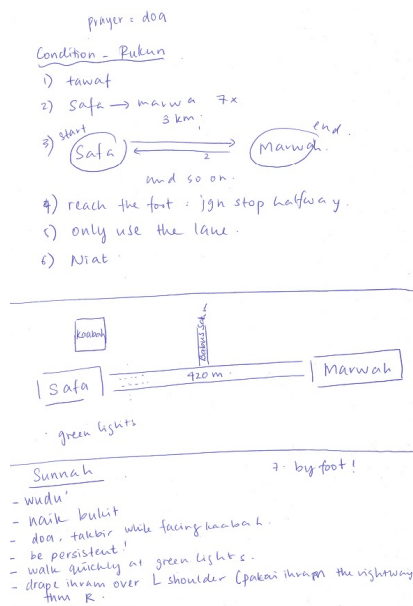 prayer = doa
Condition - Rukun
1) tawaf
2) Safa → marwa 7x
3 km
3) start Safa 1 2 Marwah end.
and so on.
4) reach the foot : jgn stop halfway.
5) only use the lane.
6) Niat
Kaabah
420 m
Safa
Marwah
green lights
Sunnah
7. by foot!
- wudu'
- naik bukit
- doa, takbir while facing kaabah.
- be persistent!
- walk quickly at green lights.
- drape ihram over L shoulder (pakai ihram the right way
thru R.